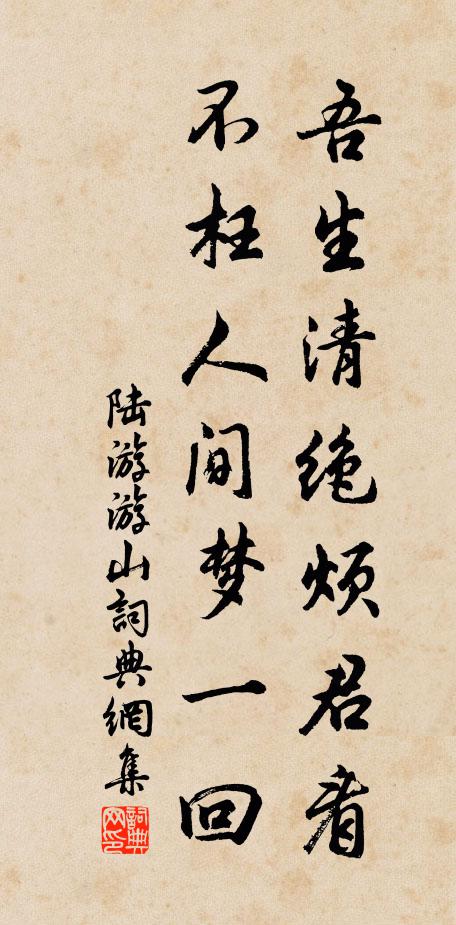 吾生清绝烦君看
不枉人间梦一回
陆游游山詞典網集
詞典网印